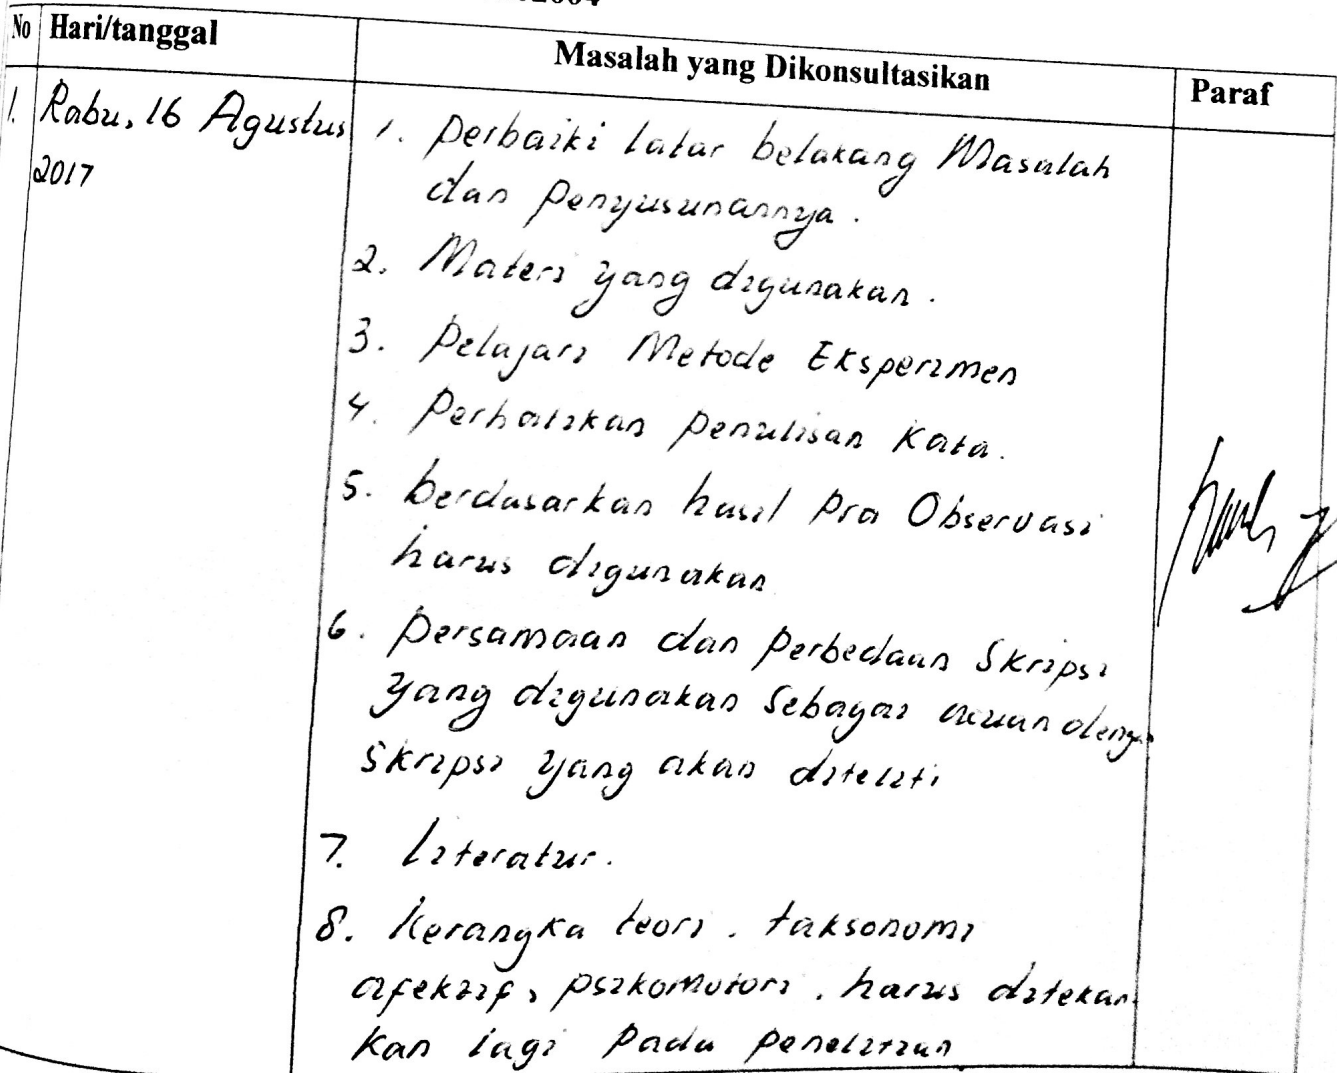 No Hari/tanggal Masalah yang Dikonsultasikan Paraf
1. Rabu, 16 Agustus
2017
1. Perbaiki latar belakang Masalah
dan Penyusunannya.
2. Materi yang digunakan.
3. Pelajari Metode Eksperimen
4. Perhatikan Penulisan Kata.
5. berdasarkan hasil Pra Observasi
harus digunakan
6. Persamaan dan Perbedaan Skripsi
yang digunakan Sebagai acuan dengan
Skripsi yang akan diteliti
7. Literatur.
8. Kerangka teori. taksonomi
afektif, psikomotori. harus ditekan
kan lagi Pada Penelitian